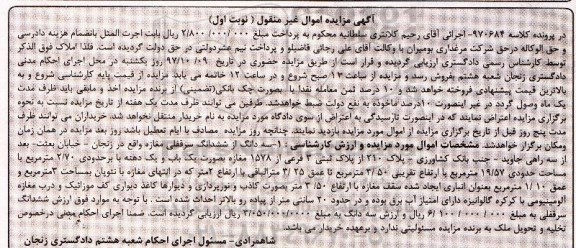 آگهی مزایده اموال غیر منقول ( نوبت اول)
در پرونده کلاسه ۹۷۰۶۸۴- اجرائی آقای رحیم کلانتری سلطانیه محکوم به پرداخت مبلغ ۲/۸۰۰/۰۰۰/۰۰۰ ریال بابت اجرت المثل بانضمام هزینه دادرسی
و حق الوکاله درحق شرکت مرغداری بومیران با وکالت آقای علی رجائی فاضلو و پرداخت نیم عشردولتی در حق دولت گردیده است. فلذا املاک فوق الذکر
توسط کارشناس رسمی دادگستری ارزیابی گردیده و قرار است از طریق مزایده حضوری در تاریخ ۹۷/۱۰/۰۹ روز یکشنبه در محل اجرای احکام مدنی
دادگستری زنجان شعبه هشتم بفروش رسد و مزایده از ساعت ۱۲ صبح شروع و در ساعت ۱۲ خاتمه می یابد. مزایده از قیمت پایه کارشناسی شروع و به
بالاترین قیمت پیشنهادی فروخته خواهد شد و ۱۰ درصد ثمن معامله نقدا یا بصورت چک بانکی(تضمینی) از برنده مزایده اخذ و مابقی باید ظرف مدت
یک ماه وصول گردد در غیر اینصورت ۱۰درصد ماخوذه به نفع دولت ضبط خواهدشد. طرفین می توانند ظرف مدت یک هفته از تاریخ مزایده نسبت به نحوه
برگزاری مزایده اعتراض نمایند که در اینصورت تارسیدگی به اعتراض از سوی دادگاه مورد مزایده به نام خریدار منتقل نخواهد شد. خریداران می توانند ظرف
مدت پنج روز قبل از تاریخ برگزاری مزایده از اموال مورد مزایده بازدید نمایند. چنانچه روز مزایده مصادف با ایام تعطیل باشد روز بعد مزایده در همان زمان
ومکان برگزار خواهدشد. مشخصات اموال مورد مزایده و ارزش کارشناسی : ۱-سه دانگ از ششدانگ سرقفلی مغازه واقع در زنجان – خیابان بعثت- بعد
از سه راهی جاوید - جنب بانک کشاورزی - پلاک ۲۱۰ از پلاک ثبتی ۳ فرعی از ۱۵۷۸ مغازه بصورت یک باب و یک دهنه با برحدودی ۲/۷۰ مترمربع با
مساحت حدودی ۱۹/۵۷ مترمربع با ارتفاع تقریبی ۳/۵۰ مترمربع تا عمق ۳/۲۵ مترالباقی با ارتفاع ۲متر که در انتهای مغازه با نتوپان بمساحت ۳مترمربع و
عمق ۱/۱۰ مترمربع بعنوان انباری ایجاد شده سقف مغازه با ارتفاع ۳/۵۰ متر بصورت کاذب و نورپردازی و دیوارها کاغذ دیواری کف موزائیک و درب مغازه
آلومینیومی با کرکره گالوانیزه دارای امتیاز آب برق بوده و در حدود ۲۰ سانتی متر از پیاده رو بالاتر احداث شده است . با توجه به موارد فوق ارزش ششدانگ
سرقفلی به مبلغ ۶/۱۰۰/۰۰۰/۰۰۰ ریال و ارزش سه دانگ به مبلغ ۳/۰۵۰/۰۰۰/۰۰۰ ریال ارزیابی گردیده است. ضمنا اجرای احکام مدنی درخصوص
تخلیه و تحویل ملک به برنده مزایده مسئولیتی ندارد و برعهده خریدار می باشد.
شاهمرادی- مسئول اجرای احکام شعبه هشتم دادگستری زنجان